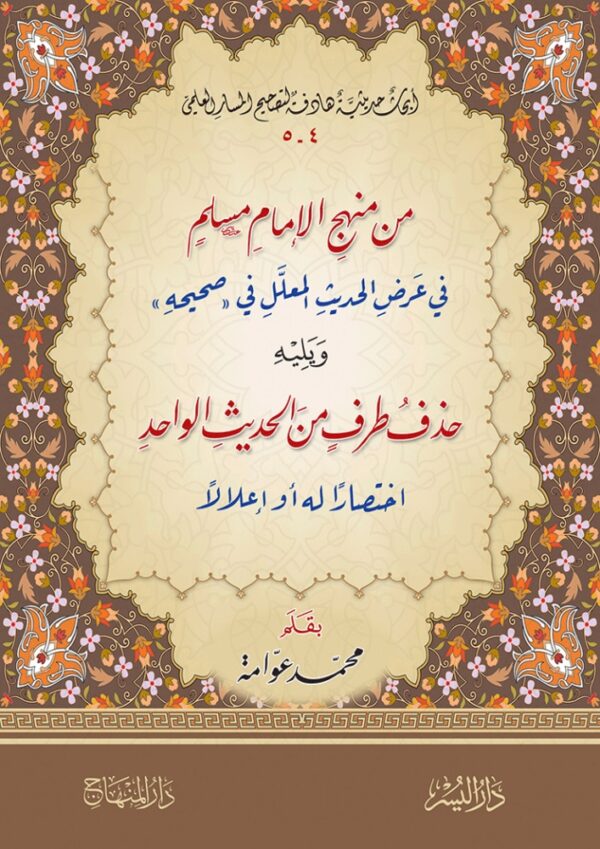 أبحاث حديثيَّة هادفة لتصحيح المسار العلمي
٤ - ٥
من منهجِ الإمامِ مسلمٍ
في عَرضِ الحديثِ المعلَّلِ في «صحيحهِ»
وَيَلِيْهِ
حذفُ طرفٍ منَ الحديثِ الواحدِ
اختصارًا له أو إعلالاً
بقَلَم
محمّد عوّامة
دَارُ اليُسْر
دَارُ المِنْهَاج